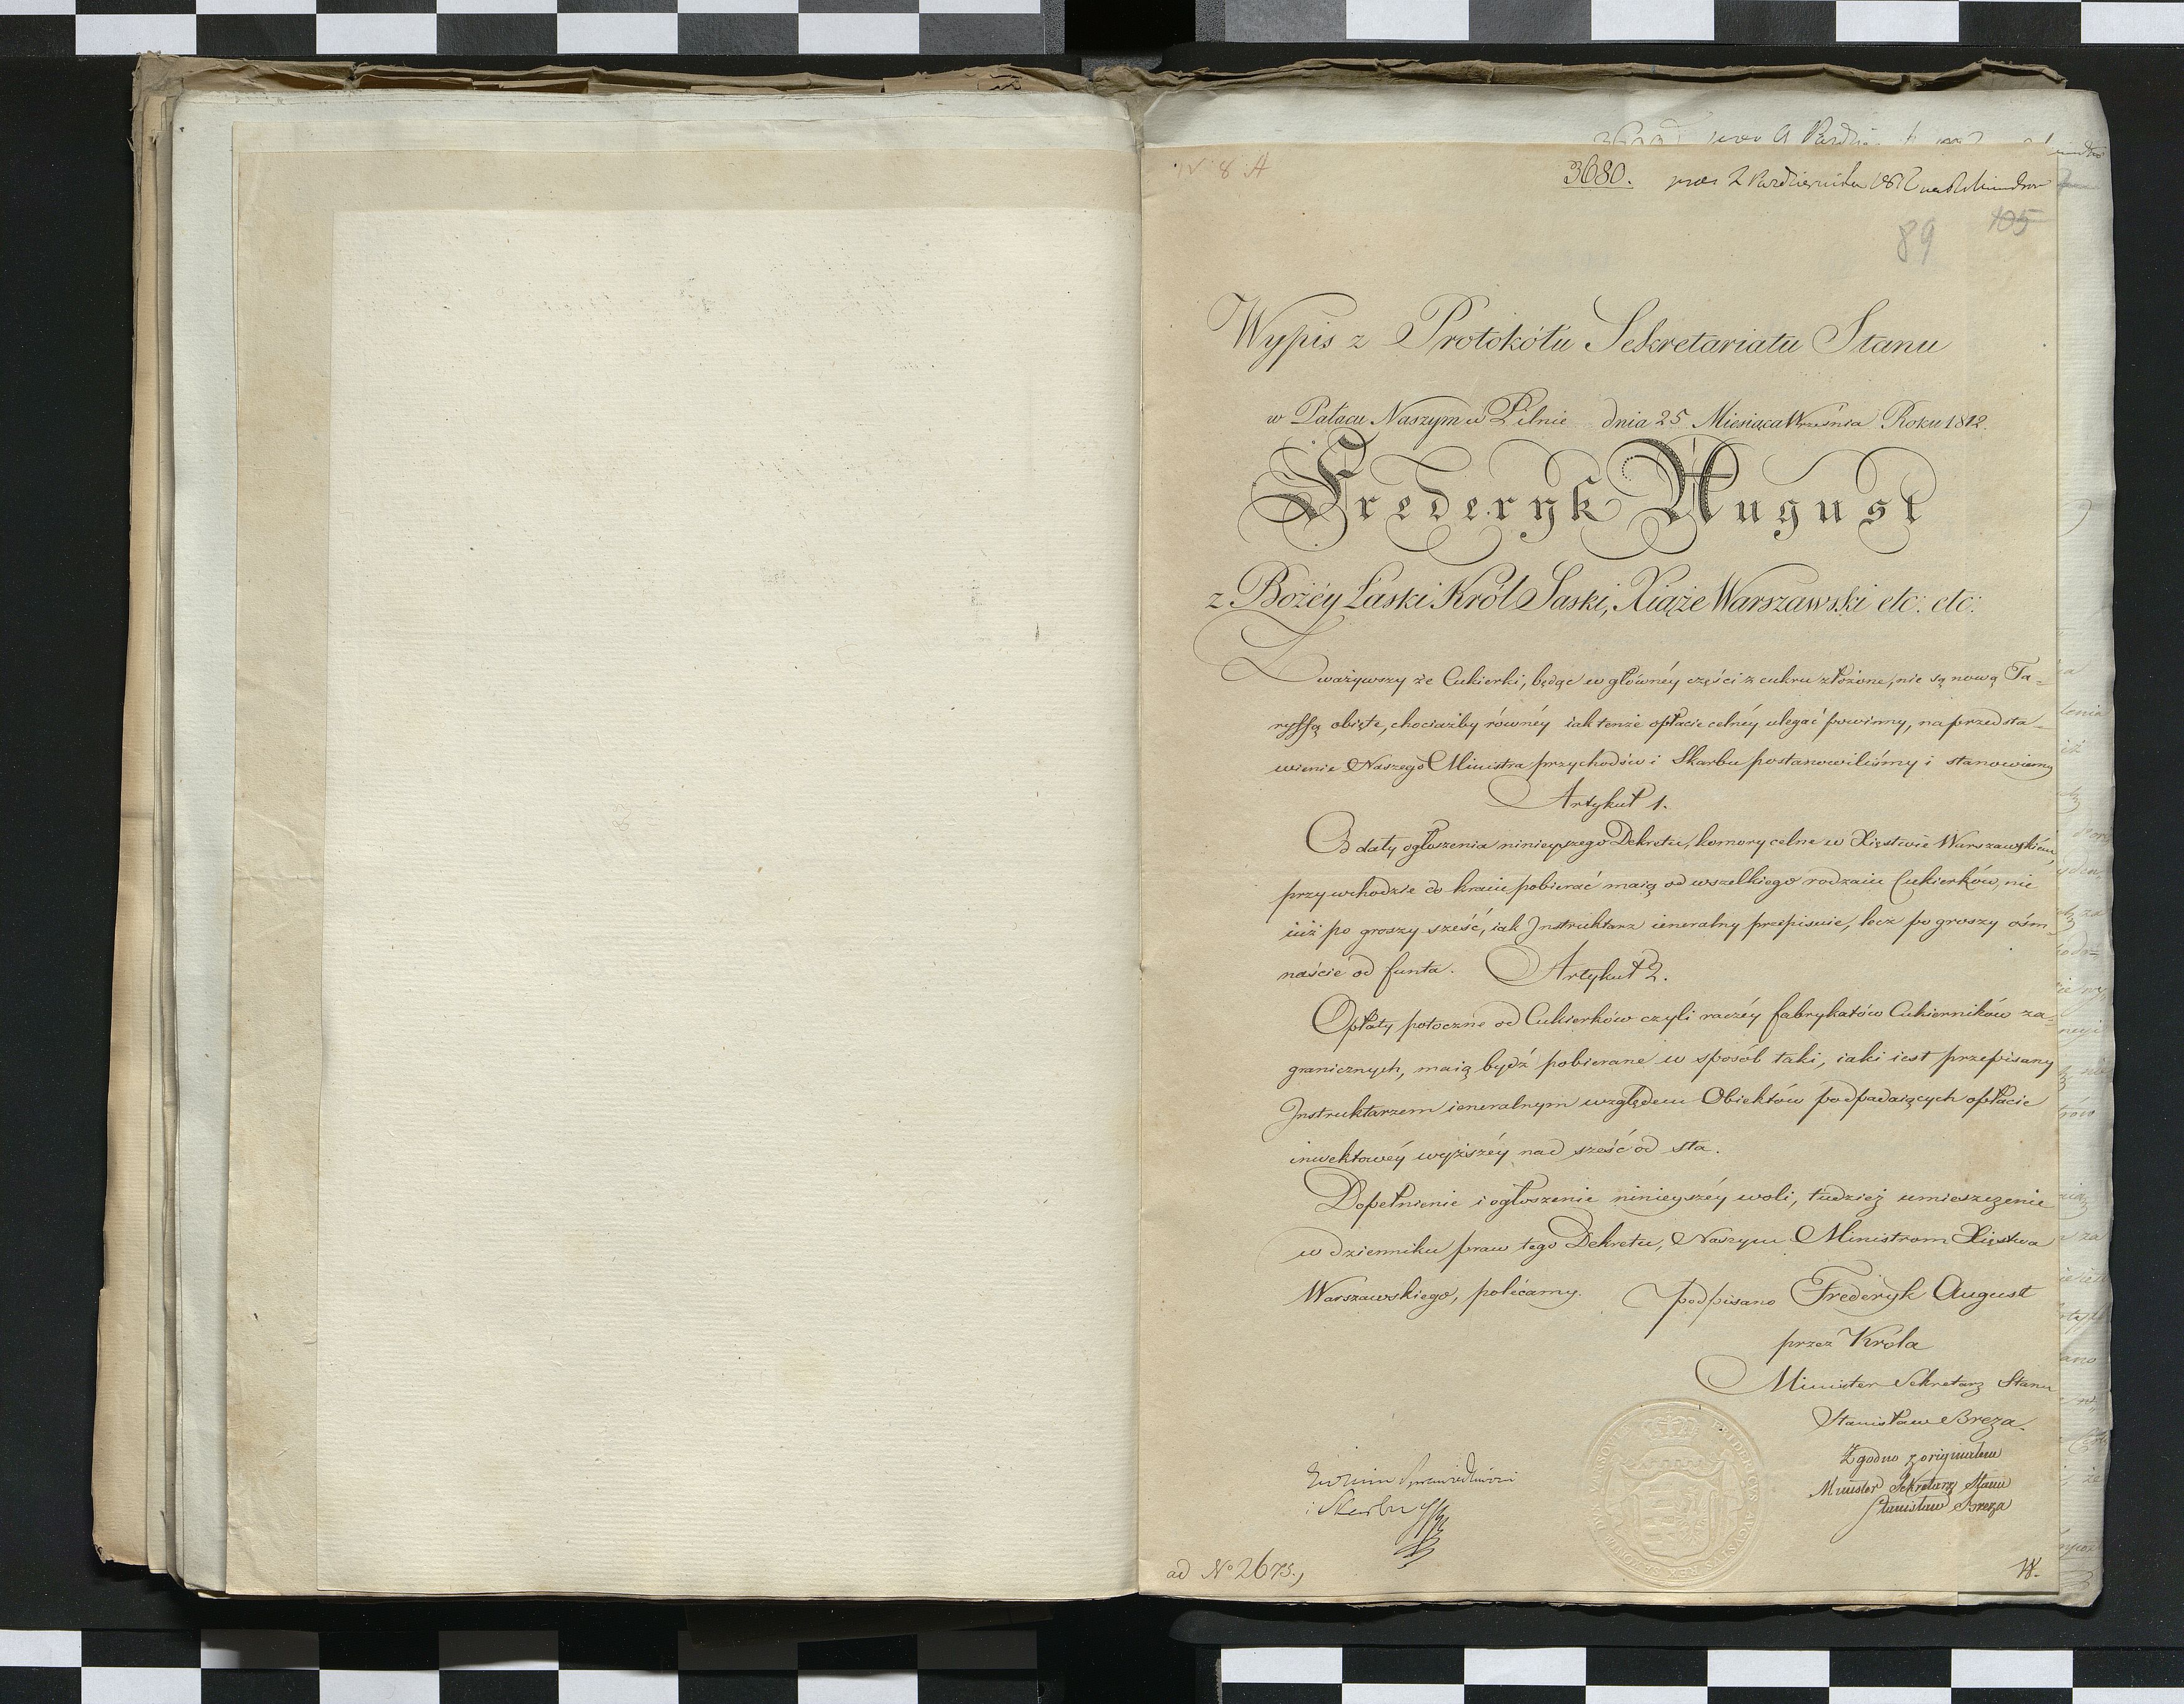 N 8 A
3680. 2 Października 1812
89 105
Wypis z Protokółu Sekretariatu Stanu
w Pałacu Naszym w Pilnie dnia 25 Miesiąca Września Roku 1812.
Frederyk August
z Bożéy Łaski Król Saski, Xiąże Warszawski etc: etc:
Zważywszy że Cukierki, będąc w główney części z cukru złożone, nie są nową Ta=
ryffą obięte, chociażby równéy iak tenże opłacie celnéy ulegać powinny, na przedsta=
wienie Naszego Ministra przychodów i Skarbu postanowiliśmy i stanowiemy
Artykuł 1.
Od daty ogłoszenia ninieyszego Dekretu, komory celne w Xięstwie Warszawskiém,
przy wchodzie do kraiu pobierać maią od wszelkiego rodzaiu Cukierków, nie
iuż po groszy sześć, iak Instruktarz ieneralny przepisuie, lecz po groszy ośm=
naście od funta. Artykuł 2.
Opłaty potoczne od Cukierków czyli raczéy fabrykatów Cukierników za=
granicznych, maią bydź pobierane w sposób taki, iaki iest przepisany
Instruktarzem ieneralnym względem Obiektów podpadaiących opłacie
inwektowéy wyższéy nad sześć od sta.
Dopełnienie i ogłoszenie ninieyszéy woli, tudzież umieszczenie
w dzienniku praw tego Dekretu, Naszym Ministrom Xięstwa
Warszawskiego, polécamy. podpisano Frederyk August
przez Króla
Minister Sekretarz Stanu
Stanisław Breza.
Zgodno z originałem
Minister Sekretarz Stanu
Stanisław Breza
Sprawiedliwości
i Skarbu
ad No 2673.,